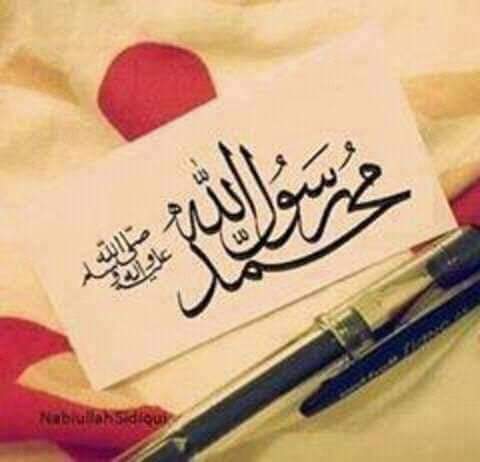 محمد رسول الله
صلى الله عليه وآله وسلم
NabiullahSidiqui